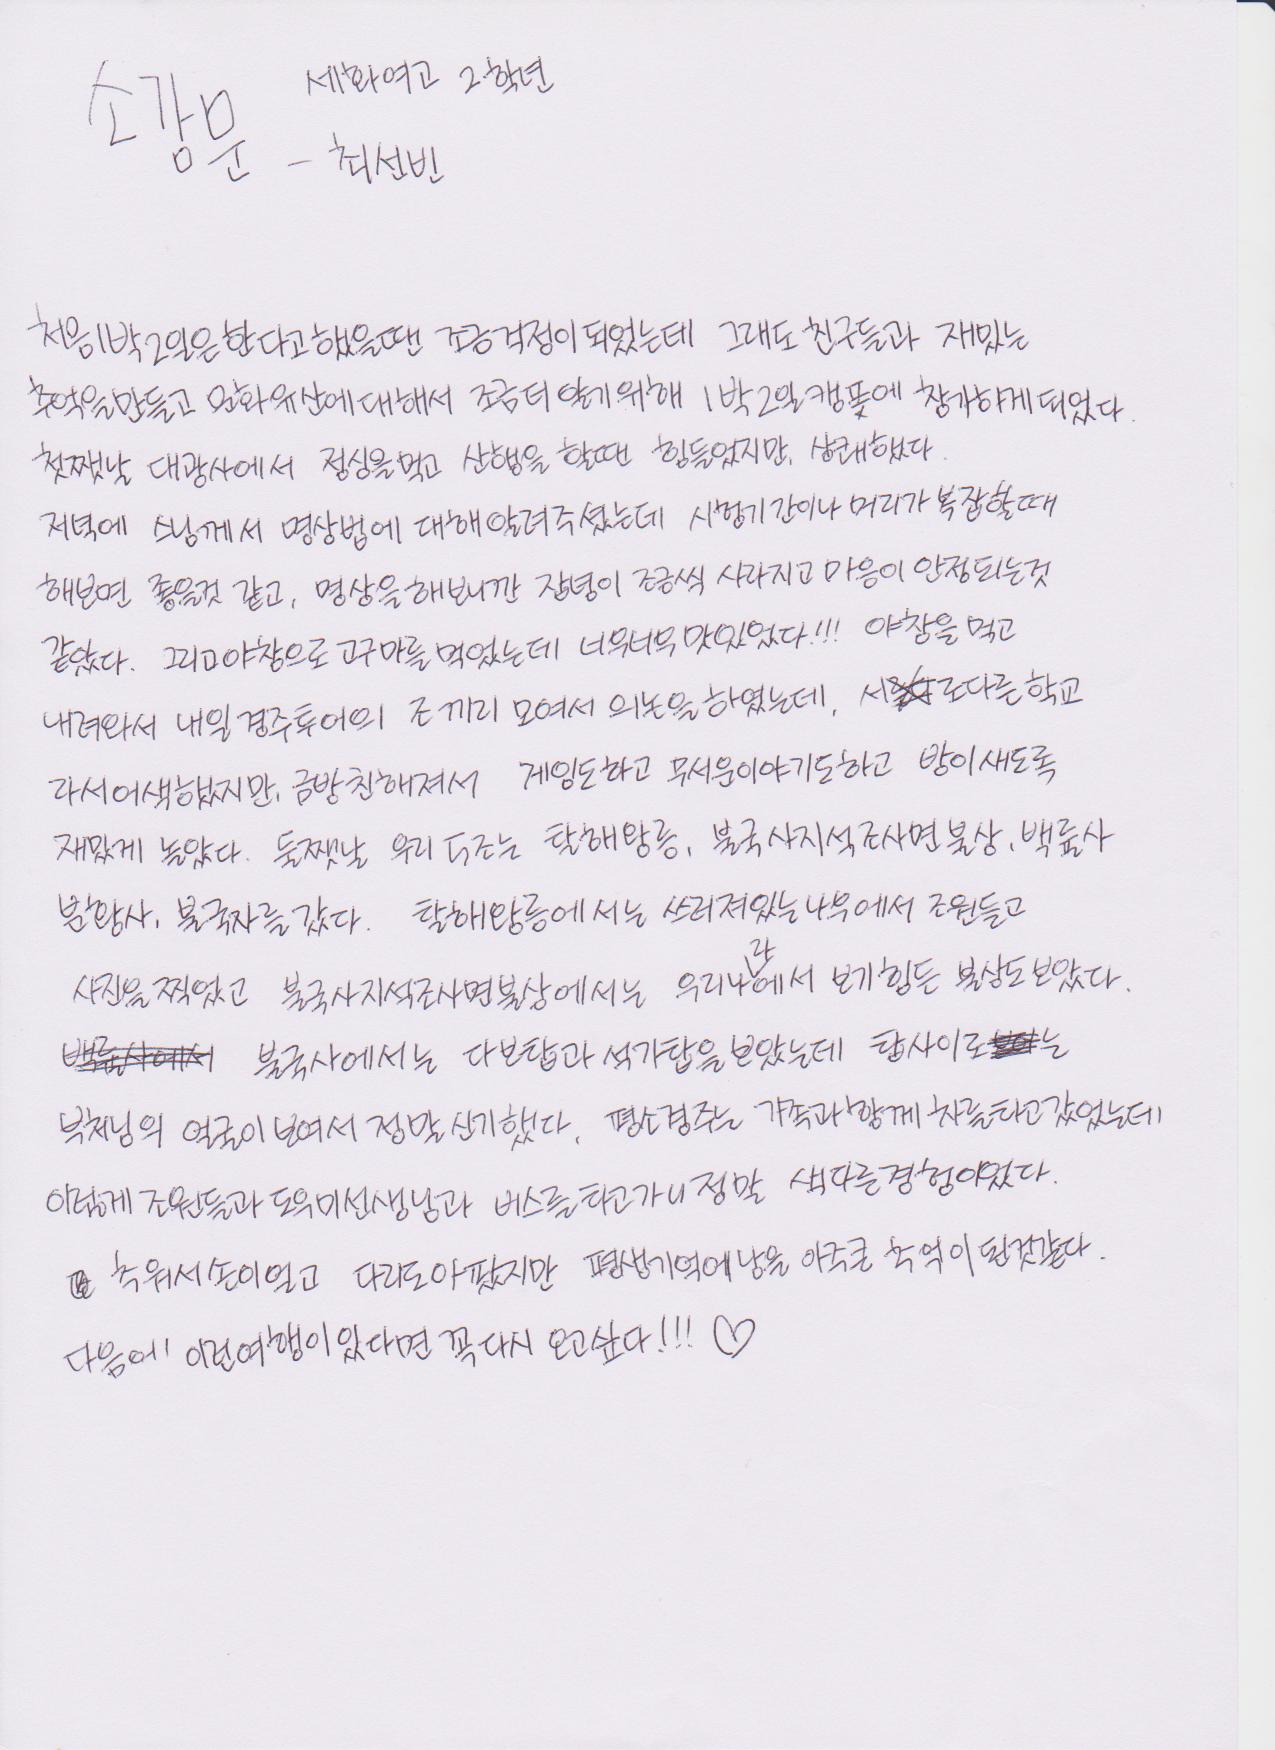 소감문 세화여고 2학년
- 최선빈
처음1박2일은한다고했을땐 조금걱정이되었는데 그래도 친구들과 재밌는
추억을만들고 문화유산에대해서 조금더 알기위해 1박2일캠프에 참가하게되었다.
첫쨋날 대광사에서 점심을먹고 산행을 할땐 힘들었지만, 상쾌했다.
저녁에 스님께서 명상법에 대해알려주셨는데 시험기간이나 머리가 복잡할때
해보면 좋을것 같고, 명상을해보니깐 잡념이 조금씩 사라지고 마음이 안정되는것
같았다. 그리고야참으로고구마를먹었는데 너무너무맛있었다!!! 야참을먹고
내려와서 내일경주투어의 조끼리 모여서 의논을하였는데, 서로다른학교
라서어색했지만, 금방친해져서 게임도하고 무서운이야기도하고 밤이새도록
재밌게 놀았다. 둘쨋날 우리 조는 탈해왕릉, 불국사지석조사면불상, 백률사
분황사, 불국자를 갔다. 탈해왕릉에서는 쓰러져있는나무에서 조원들고
사진을찍었고 불국사지석조사면불상에서는 우리나라에서 보기힘든 불상도보았다.
불국사에서는 다보탑과석가탑을보았는데 탑사이로는
부처님의 얼굴이보여서정말신기했다. 평소경주는 가족과함께차를타고갔었는데
이렇게조원들과도우미선생님과 버스를타고가니정말 색다른경험이었다.
추워서손이얼고 다리도아팠지만 평생기억에남을아주큰추억이된것같다.
다음에 이런여행이있다면 꼭다시 오고싶다!!! ♡